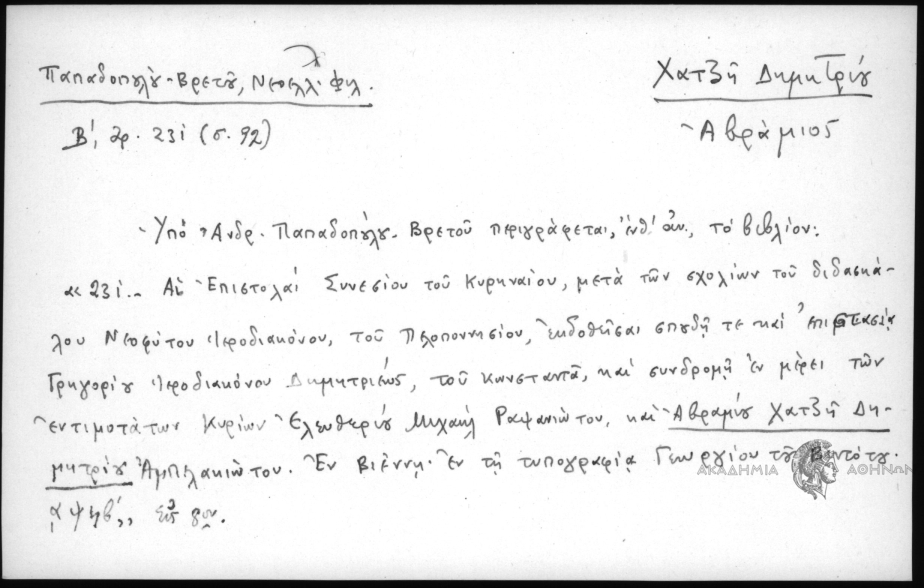 Παπαδοπούλου-Βρετοῦ, Νεοελλ. Φιλ.
Χατζῆ Δημητρίου
Β', ἀρ. 231 (σ. 92)
Ἀβράμιος
Ὑπὸ Ἀνδρ. Παπαδοπούλου-Βρετοῦ περιγράφεται, ἔνθ' ἀν., τὸ βιβλίον:
«231.- Αἱ Ἐπιστολαὶ Συνεσίου τοῦ Κυρηναίου, μετὰ τῶν σχολίων τοῦ διδασκά-
λου Νεοφύτου Ἱεροδιακόνου, τοῦ Πελοποννησίου, ἐκδοθεῖσαι σπουδῇ τε καὶ ἐπιστασίᾳ
Γρηγορίου Ἱεροδιακόνου Δημητριέως, τοῦ Κωνσταντᾶ, καὶ συνδρομῇ ἐν μέρει τῶν
ἐντιμοτάτων Κυρίων Ἐλευθερίου Μιχαὴλ Ραψανιώτου, καὶ Ἀβραμίου Χατζῆ Δη-
μητρίου Ἀμπελακιώτου. Ἐν Βιέννῃ· Ἐν τῇ τυπογραφίᾳ Γεωργίου τοῦ Βεντότου.
͵αψϟβ', εἰς 8ον.
ΑΚΑΔΗΜΙΑ ΑΘΗΝΩΝ